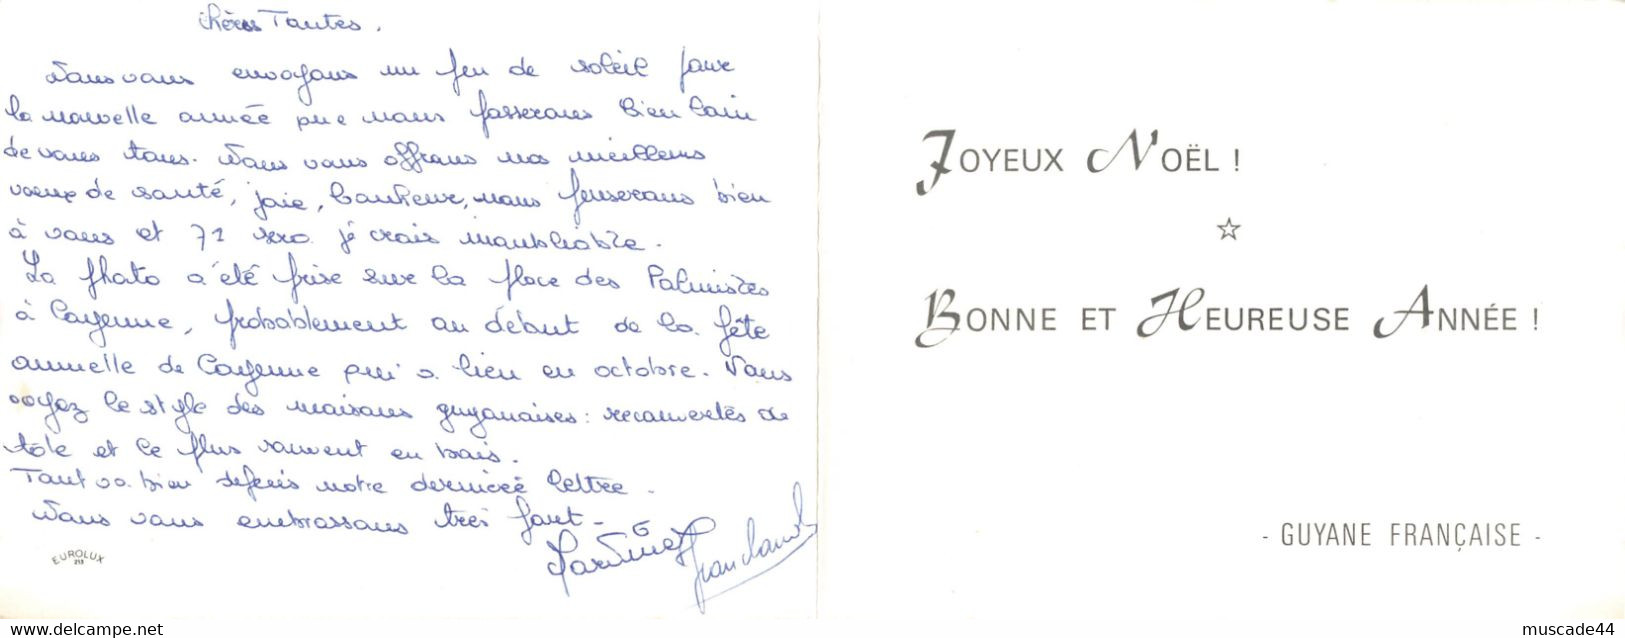 Chères Tantes,
Nous vous envoyons un peu de soleil pour
la nouvelle année que nous passerons bien loin
de vous tous. Nous vous offrons nos meilleurs
voeux de santé, joie, bonheur, nous penserons bien
à vous et 71 sera je crois inoubliable.
La photo a été prise sur la place des Palmistes
à Cayenne, probablement au début de la fête
annuelle de Cayenne qui a lieu en octobre. Vous
voyez le style des maisons guyanaises : recouvertes de
tole et le plus souvent en bois.
Tout va bien depuis notre dernière lettre.
Nous vous embrassons très fort -
Martine Jean Claude
EUROLUX
JOYEUX NOËL !
☆
BONNE ET HEUREUSE ANNÉE !
- GUYANE FRANÇAISE -
www.delcampe.net
muscade44